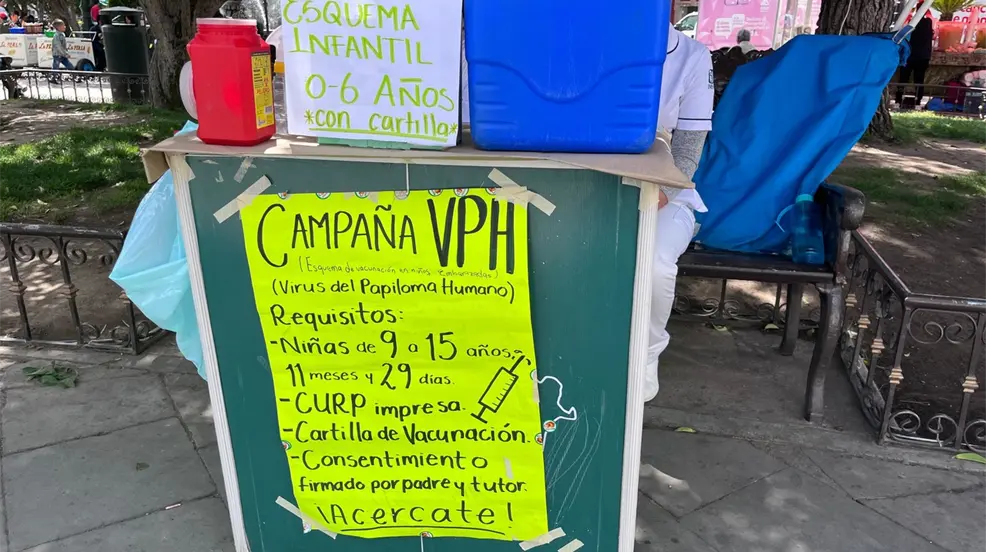 ESQUEMA
INFANTIL
0-6 AÑOS
*con cartilla*
CAMPAÑA VPH
(Esquema de vacunación en niños y embarazadas)
(Virus del Papiloma Humano)
Requisitos:
-Niñas de 9 a 15 años,
11 meses y 29 días.
-CURP impresa.
-Cartilla de Vacunación.
-Consentimiento
firmado por padre y tutor.
¡Acercate!